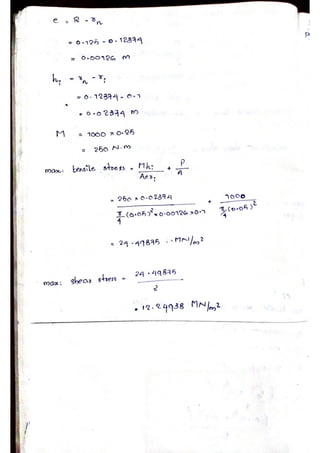 e = R - rₙ
= 0.125 - 0.12374
= 0.00126 m
hᵢ = rₙ - rᵢ
= 0.12374 - 0.1
= 0.02374 m
M = 1000 × 0.25
= 250 N.m
max: tensile stress = Mhᵢ/Aerᵢ + P/A
= 250 × 0.02374 / π/4 (0.05)² × 0.00126 × 0.1 + 1000 / π/4 (0.05)²
= 24.49875 MN/m²
max: shear stress = 24.49875 / 2
= 12.24938 MN/m²